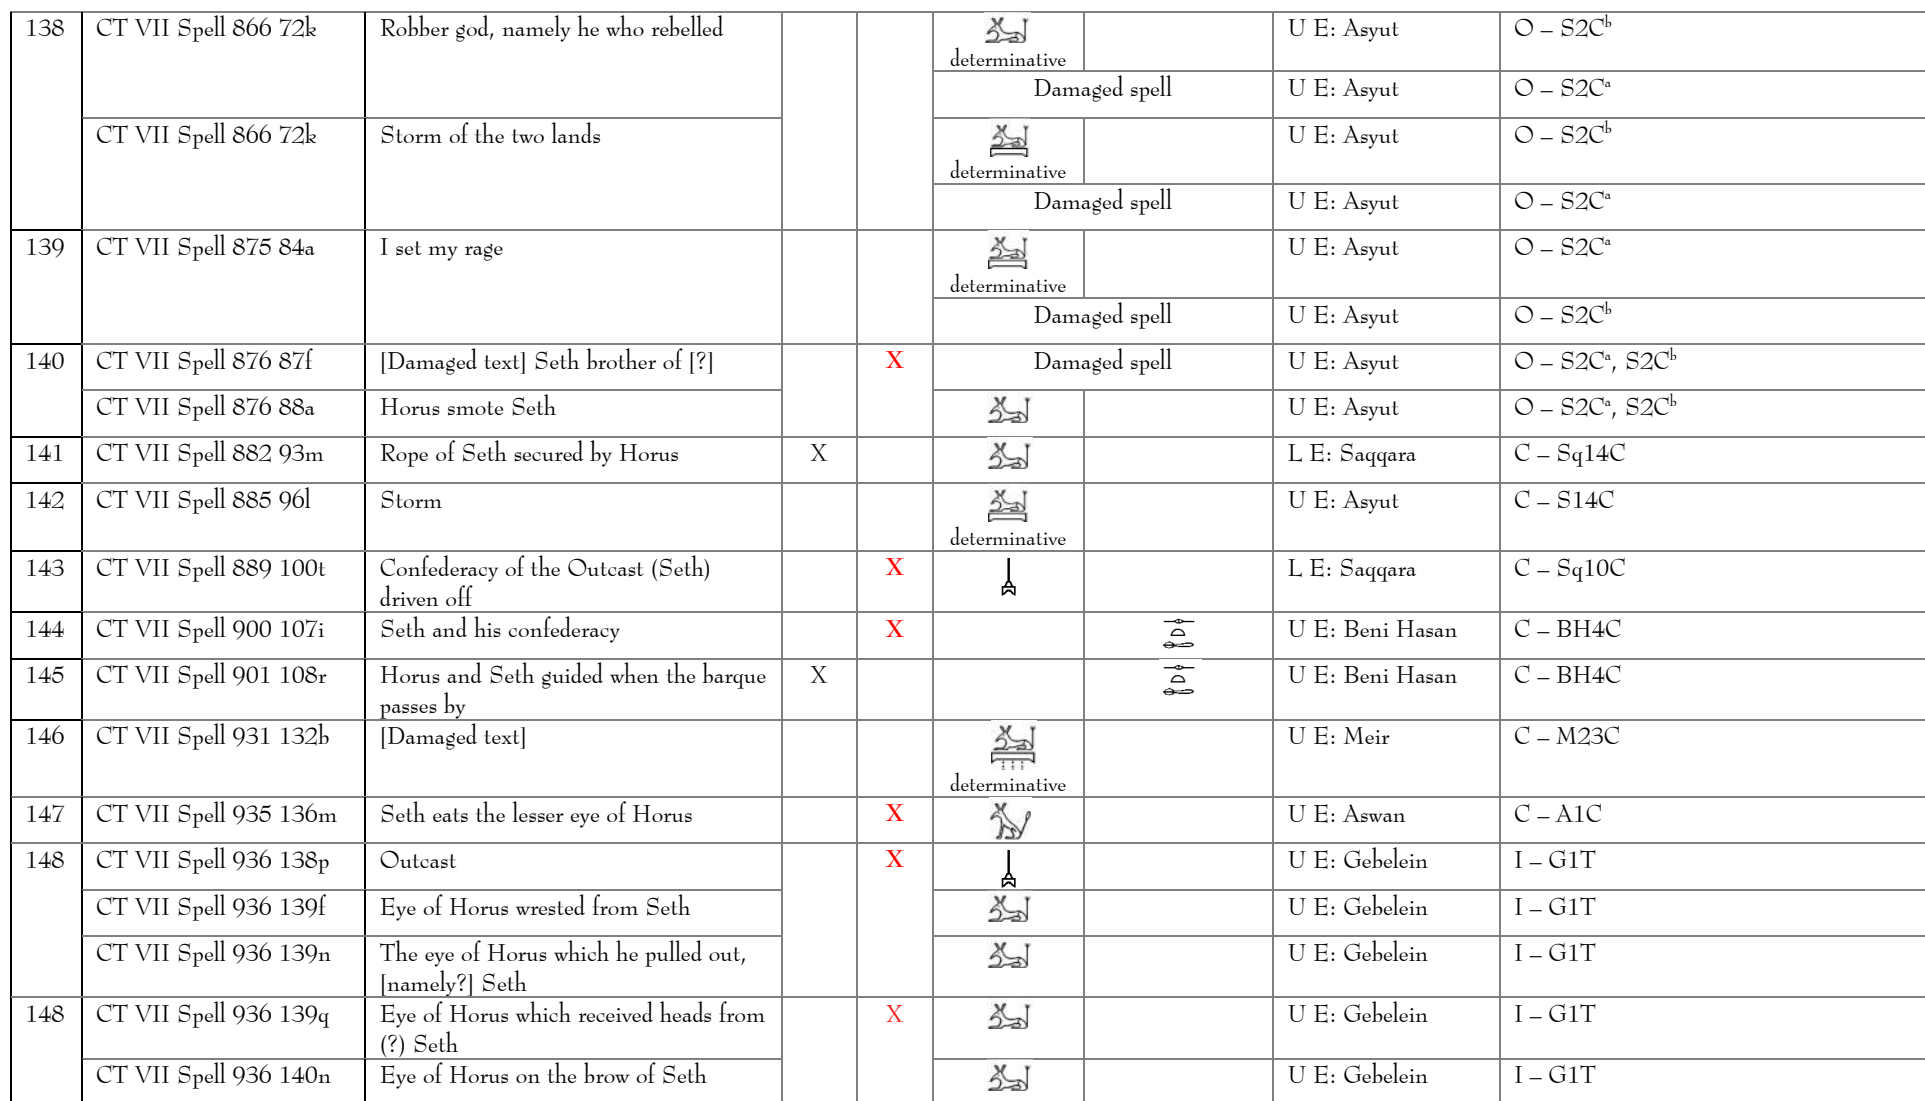 138 CT VII Spell 866 72k Robber god, namely he who rebelled U E: Asyut O – S2Cᵇ
determinative
Damaged spell U E: Asyut O – S2Cᵃ
CT VII Spell 866 72k Storm of the two lands U E: Asyut O – S2Cᵇ
determinative
Damaged spell U E: Asyut O – S2Cᵃ
139 CT VII Spell 875 84a I set my rage U E: Asyut O – S2Cᵃ
determinative
Damaged spell U E: Asyut O – S2Cᵇ
140 CT VII Spell 876 87f [Damaged text] Seth brother of [?] X Damaged spell U E: Asyut O – S2Cᵃ, S2Cᵇ
CT VII Spell 876 88a Horus smote Seth U E: Asyut O – S2Cᵃ, S2Cᵇ
141 CT VII Spell 882 93m Rope of Seth secured by Horus X L E: Saqqara C – Sq14C
142 CT VII Spell 885 96l Storm U E: Asyut C – S14C
determinative
143 CT VII Spell 889 100t Confederacy of the Outcast (Seth) X L E: Saqqara C – Sq10C
driven off
144 CT VII Spell 900 107i Seth and his confederacy X U E: Beni Hasan C – BH4C
145 CT VII Spell 901 108r Horus and Seth guided when the barque X U E: Beni Hasan C – BH4C
passes by
146 CT VII Spell 931 132b [Damaged text] U E: Meir C – M23C
determinative
147 CT VII Spell 935 136m Seth eats the lesser eye of Horus X U E: Aswan C – A1C
148 CT VII Spell 936 138p Outcast X U E: Gebelein I – G1T
CT VII Spell 936 139f Eye of Horus wrested from Seth U E: Gebelein I – G1T
CT VII Spell 936 139n The eye of Horus which he pulled out, U E: Gebelein I – G1T
[namely?] Seth
148 CT VII Spell 936 139q Eye of Horus which received heads from X U E: Gebelein I – G1T
(?) Seth
CT VII Spell 936 140n Eye of Horus on the brow of Seth U E: Gebelein I – G1T